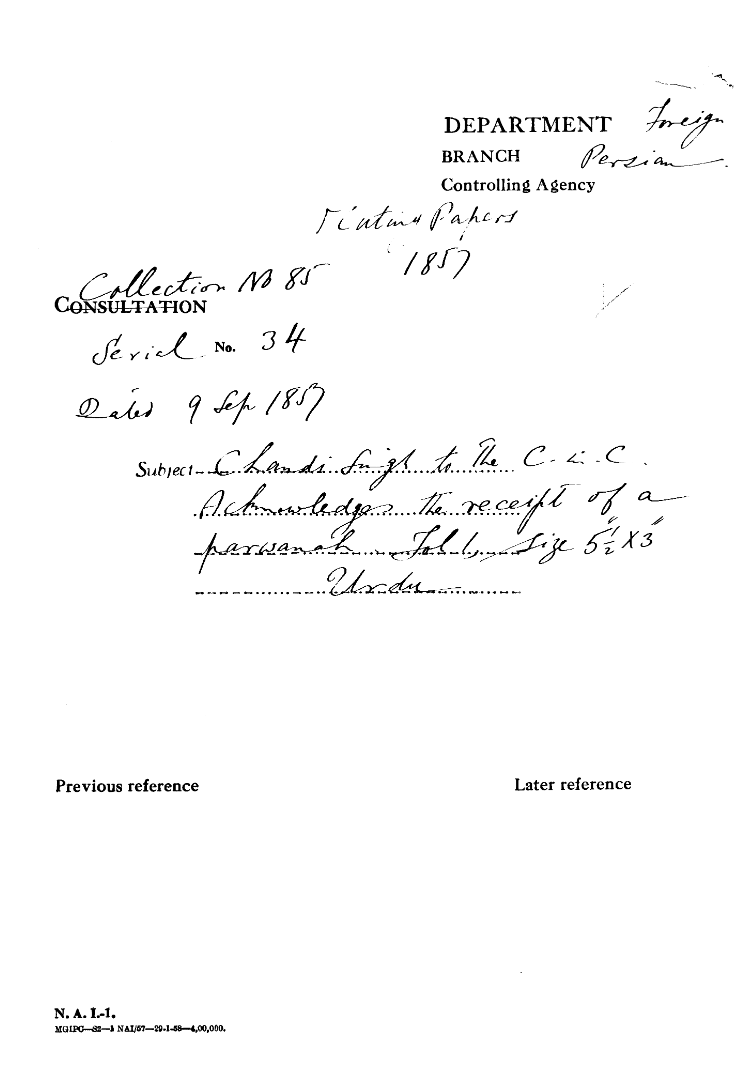 DEPARTMENT Foreign
BRANCH Persian
Controlling Agency
Papers
1857
Collection No 85
CONSULTATION
Serial No. 34
Dated 9 Sep 1857
Subject Chandi Singh to the C-in-C.
Acknowledges the receipt of a
parwanah Fol 1, Size 5½" X 3"
Urdu
Previous reference Later reference
N. A. I.-1.
MGIPC—S2—1 NAI/57—29-1-58—4,00,000.